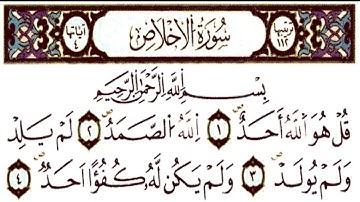 ترتيبها ١١٢ سُورَةُ الْإِخْلَاصِ آياتها ٤
بِسْمِ اللَّهِ الرَّحْمَٰنِ الرَّحِيمِ
قُلْ هُوَ اللَّهُ أَحَدٌ ١ اللَّهُ الصَّمَدُ ٢ لَمْ يَلِدْ
وَلَمْ يُولَدْ ٣ وَلَمْ يَكُن لَّهُ كُفُوًا أَحَدٌ ٤